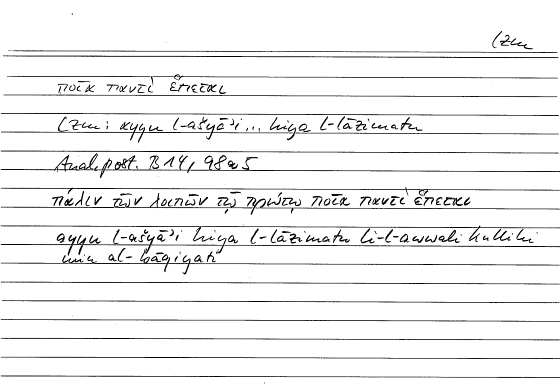 lzm
ποῖα παντὶ ἕπεται
lzm: ayyu l-ašyāʾi... hiya l-lāzimatu
Anal. post. B 14, 98a5
πάλιν τῶν λοιπῶν τῷ πρώτῳ ποῖα παντὶ ἕπεται
ayyu l-ašyāʾi hiya l-lāzimatu li-l-awwali kullihi
min al-bāqiyati